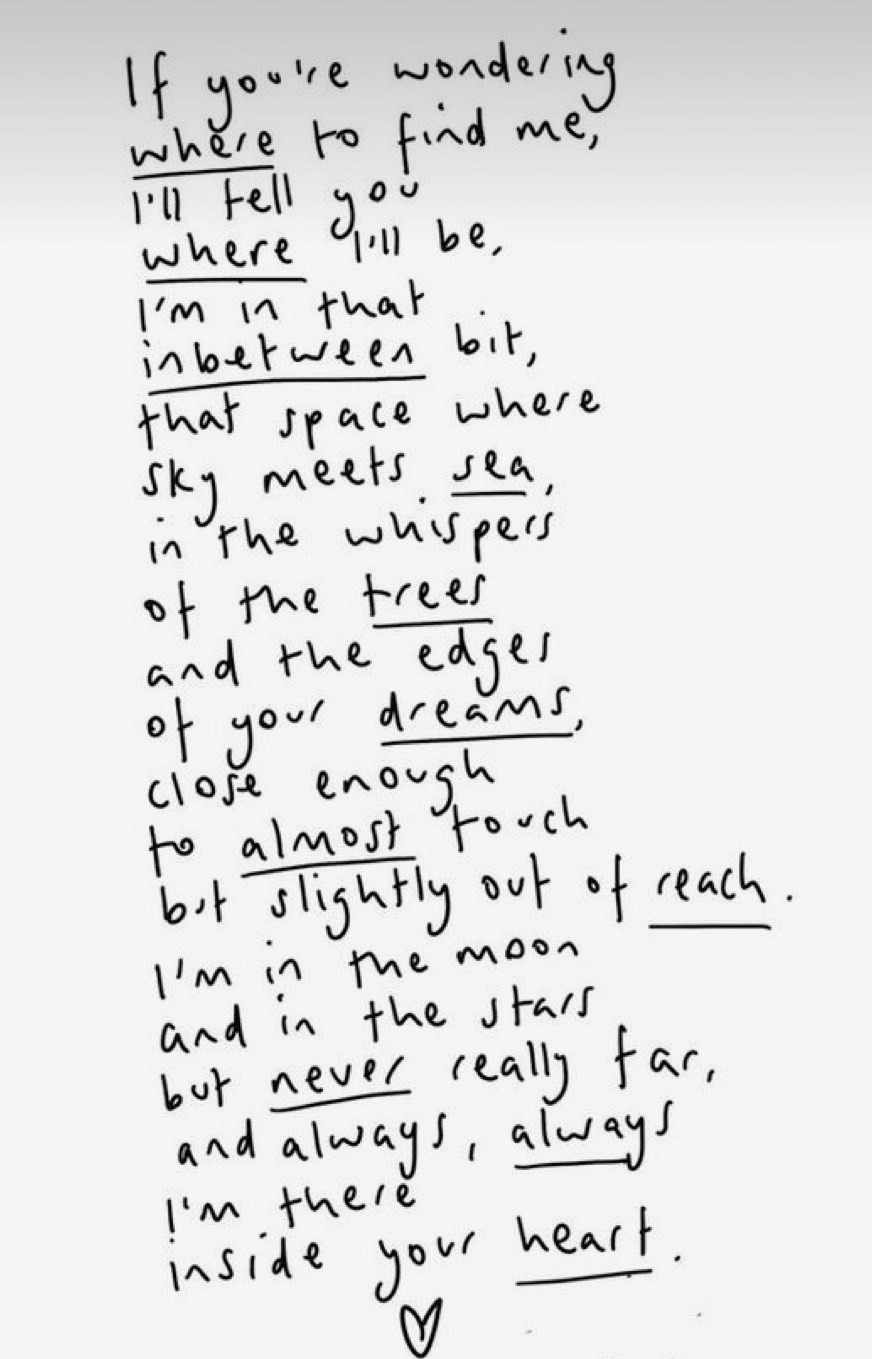 If you're wondering
where to find me,
I'll tell you
where I'll be,
I'm in that
inbetween bit,
that space where
sky meets sea,
in the whispers
of the trees
and the edges
of your dreams,
close enough
to almost touch
but slightly out of reach.
I'm in the moon
and in the stars
but never really far,
and always, always
I'm there
inside your heart.